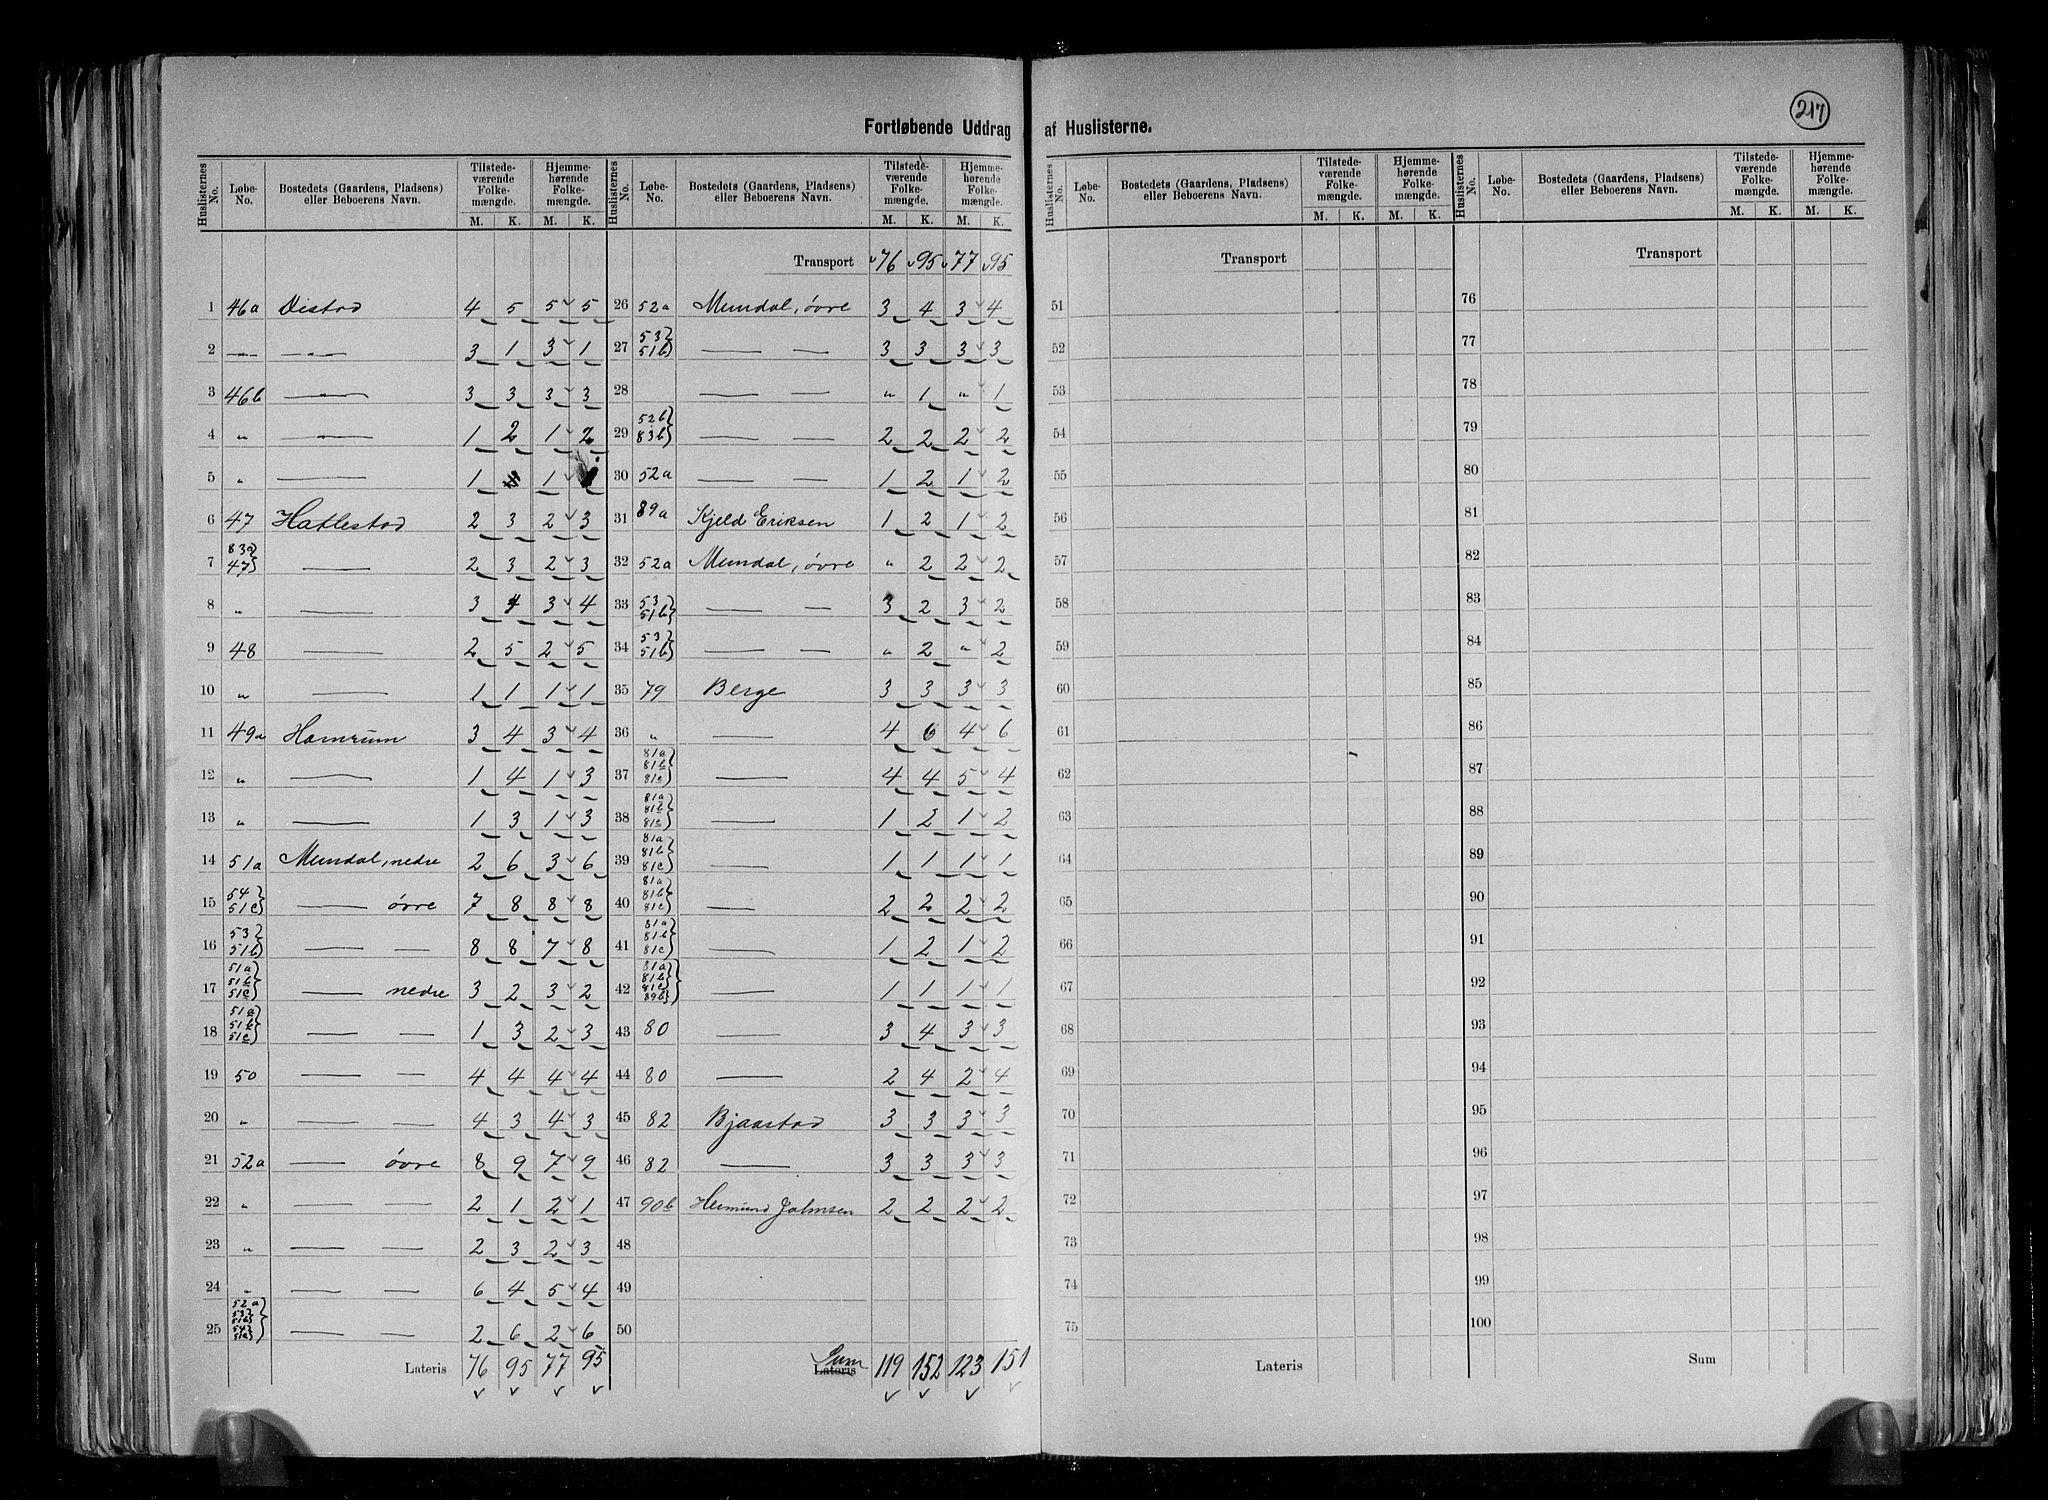 217
Fortløbende Uddrag af Huslisterne.
Huslisternes No. | Løbe-No. | Bostedets (Gaardens, Pladsens) eller Beboerens Navn. | Tilstedeværende Folkemængde. M. K. | Hjemmehørende Folkemængde. M. K.
1 46a Distad 4 5 5 5
2 " — 3 1 3 1
3 46b — 3 3 3 3
4 " — 1 2 1 2
5 " — 1 1
6 47 Hatlestad 2 3 2 3
7 83a 47} — 2 3 2 3
8 " — 3 4 3 4
9 48 — 2 5 2 5
10 " — 1 1 1 1
11 49a Hamrum 3 4 3 4
12 " — 1 4 1 3
13 " — 1 3 1 3
14 51a Mundal, nedre 2 6 3 6
15 54 51c} — øvre 7 8 8 8
16 53 51b} — — 8 8 7 8
17 51a 51b 51c} — nedre 3 2 3 2
18 51a 51b 51c} — — 1 3 2 3
19 50 — — 4 4 4 4
20 " — — 4 3 4 3
21 52a — øvre 8 9 7 9
22 " — — 2 1 2 1
23 " — — 2 3 2 3
24 " — — 6 4 5 4
25 52a 53 51b 54 51c} — — 2 6 2 6
Lateris 76 95 77 95
Huslisternes No. | Løbe-No. | Bostedets (Gaardens, Pladsens) eller Beboerens Navn. | Tilstedeværende Folkemængde. M. K. | Hjemmehørende Folkemængde. M. K.
Transport 76 95 77 95
26 52a Mundal, øvre 3 4 3 4
27 53 51b} — — 3 3 3 3
28 — — " 1 " 1
29 52b 83b} — — 2 2 2 2
30 52a — — 1 2 1 2
31 89a Kjeld Eriksen 1 2 1 2
32 52a Mundal, øvre " 2 2 2
33 53 51b} — — 3 2 3 2
34 53 51b} — — " 2 " 2
35 79 Berge 3 3 3 3
36 " — 4 6 4 6
37 81a 81b 81c} — 4 4 5 4
38 81a 81b 81c} — 1 2 1 2
39 81a 81b 81c} — 1 1 1 1
40 81a 81b 81c} — 2 2 2 2
41 81a 81b 81c} — 1 2 1 2
42 81a 81b 81c 89b} — 1 1 1 1
43 80 — 3 4 3 3
44 80 — 2 4 2 4
45 82 Bjaastad 3 3 3 3
46 82 — 3 3 3 3
47 90b Heimund Johnsen 2 2 2 2
48
49
50
Lateris Sum 119 152 123 151
Huslisternes No. | Løbe-No. | Bostedets (Gaardens, Pladsens) eller Beboerens Navn. | Tilstedeværende Folkemængde. M. K. | Hjemmehørende Folkemængde. M. K.
Transport
51
52
53
54
55
56
57
58
59
60
61
62
63
64
65
66
67
68
69
70
71
72
73
74
75
Lateris
Huslisternes No. | Løbe-No. | Bostedets (Gaardens, Pladsens) eller Beboerens Navn. | Tilstedeværende Folkemængde. M. K. | Hjemmehørende Folkemængde. M. K.
Transport
76
77
78
79
80
81
82
83
84
85
86
87
88
89
90
91
92
93
94
95
96
97
98
99
100
Sum